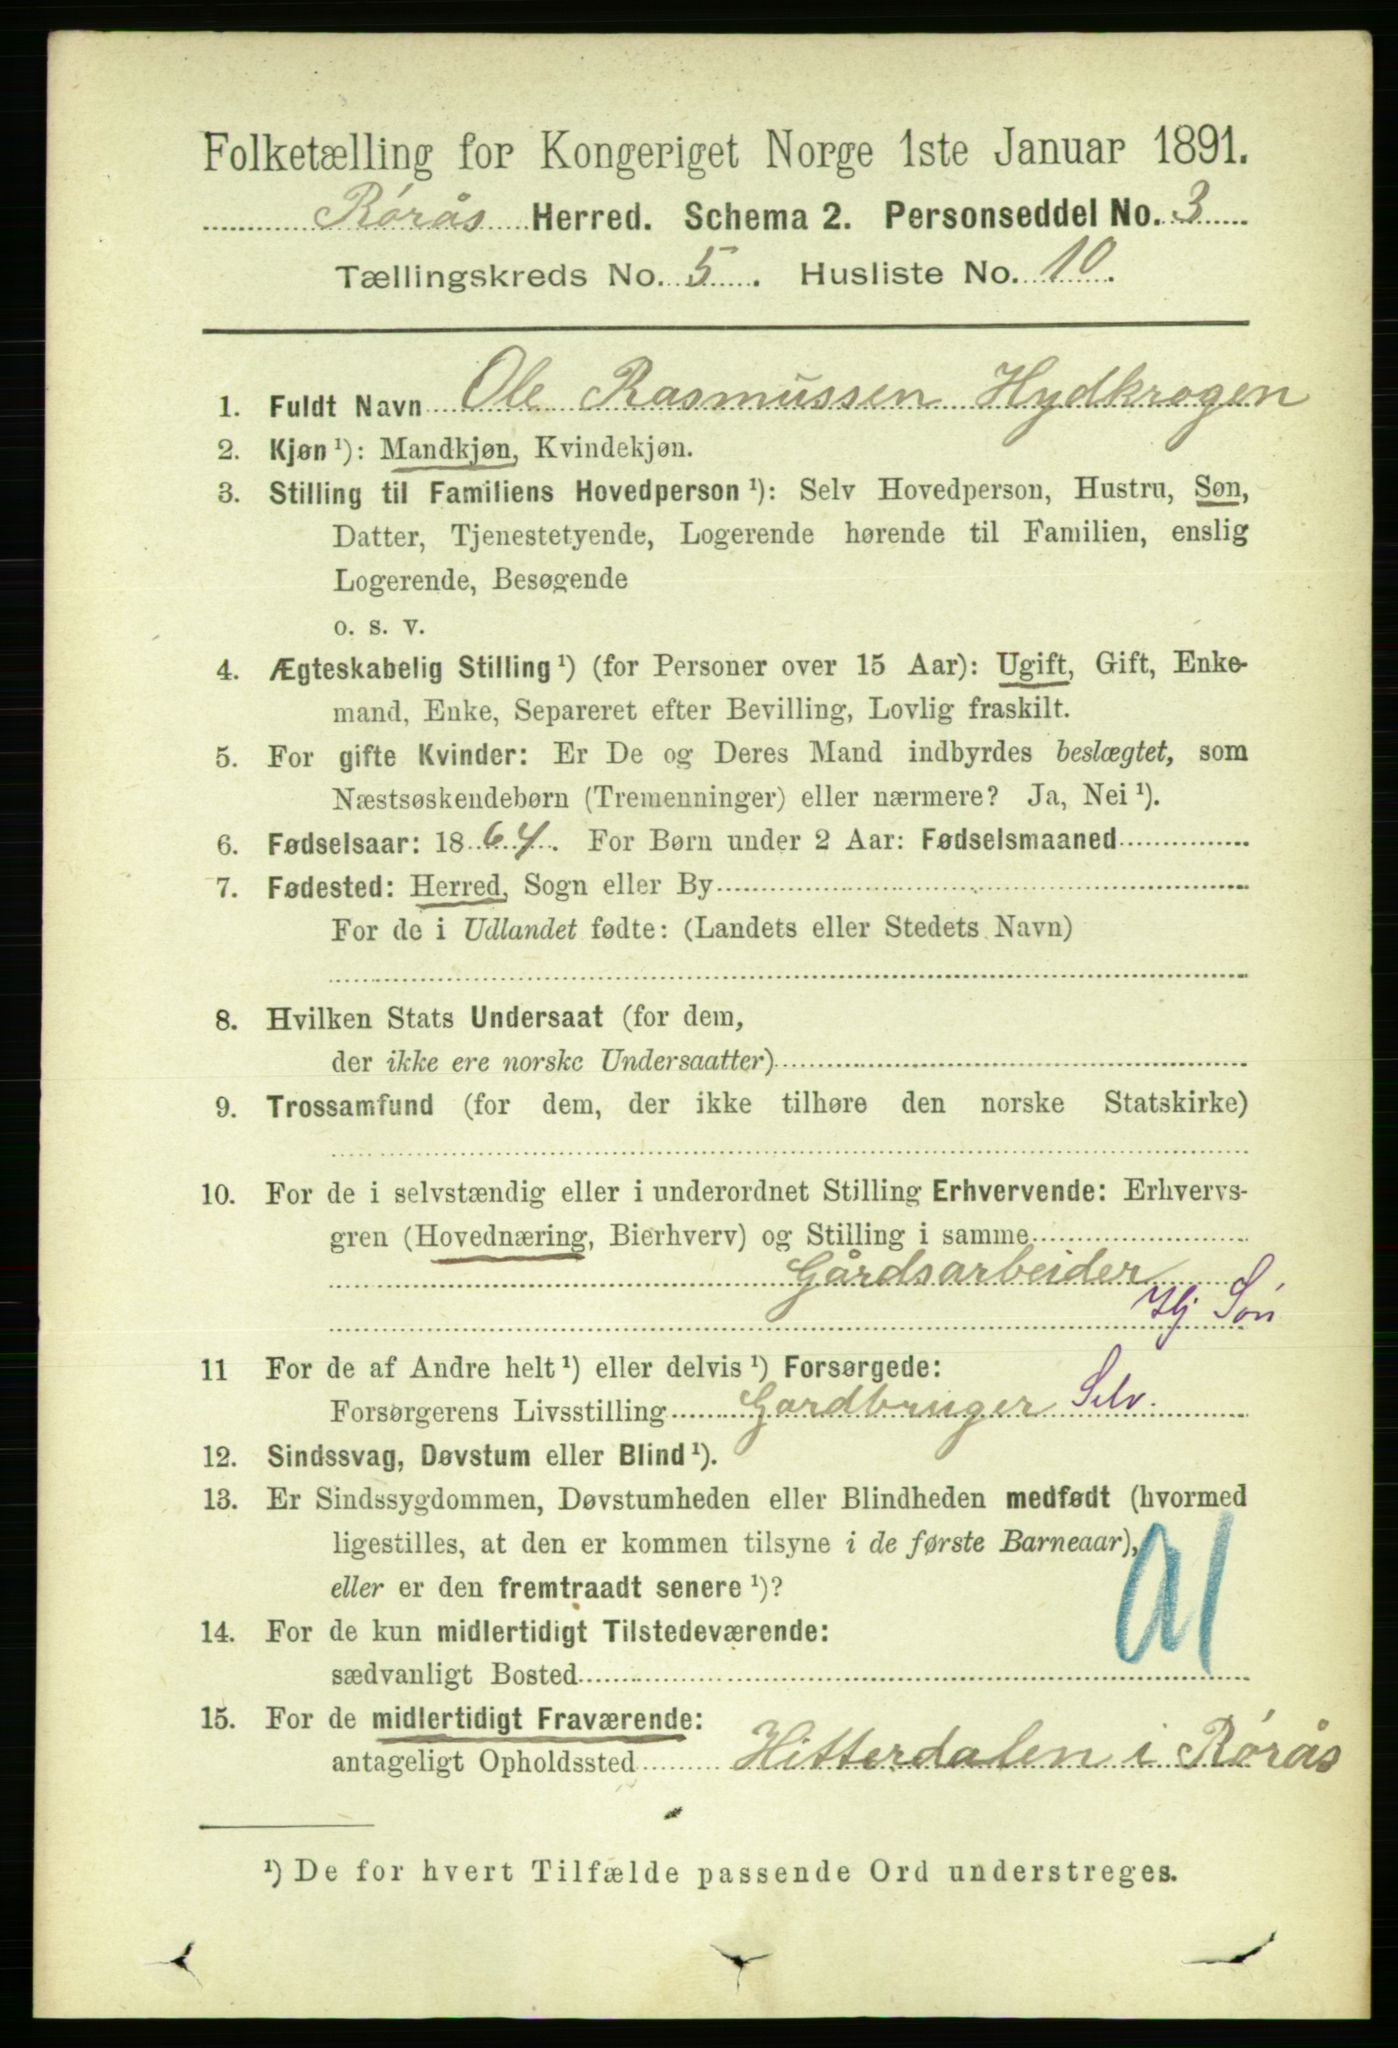 Folketælling for Kongeriget Norge 1ste Januar 1891.
Rørås Herred. Schema 2. Personseddel No. 3
Tællingskreds No. 5. Husliste No. 10.
1. Fuldt Navn Ole Rasmussen Hydkrogen
2. Kjøn ¹): Mandkjøn, Kvindekjøn.
3. Stilling til Familiens Hovedperson ¹): Selv Hovedperson, Hustru, Søn,
Datter, Tjenestetyende, Logerende hørende til Familien, enslig
Logerende, Besøgende
o. s. v.
4. Ægteskabelig Stilling ¹) (for Personer over 15 Aar): Ugift, Gift, Enke-
mand, Enke, Separeret efter Bevilling, Lovlig fraskilt.
5. For gifte Kvinder: Er De og Deres Mand indbyrdes beslægtet, som
Næstsøskendebørn (Tremenninger) eller nærmere? Ja, Nei ¹).
6. Fødselsaar: 1864. For Børn under 2 Aar: Fødselsmaaned
7. Fødested: Herred, Sogn eller By
For de i Udlandet fødte: (Landets eller Stedets Navn)
8. Hvilken Stats Undersaat (for dem,
der ikke ere norske Undersaatter)
9. Trossamfund (for dem, der ikke tilhøre den norske Statskirke)
10. For de i selvstændig eller i underordnet Stilling Erhvervende: Erhvervs-
gren (Hovednæring, Bierhverv) og Stilling i samme
Gårdsarbeider
Hj Søn
11 For de af Andre helt ¹) eller delvis ¹) Forsørgede:
Forsørgerens Livsstilling Gardbruger Selv.
12. Sindssvag, Døvstum eller Blind ¹).
13. Er Sindssygdommen, Døvstumheden eller Blindheden medfødt (hvormed
ligestilles, at den er kommen tilsyne i de første Barneaar),
eller er den fremtraadt senere ¹)?
14. For de kun midlertidigt Tilstedeværende:
sædvanligt Bosted
15. For de midlertidigt Fraværende:
antageligt Opholdssted Hitterdalen i Rørås
¹) De for hvert Tilfælde passende Ord understreges.